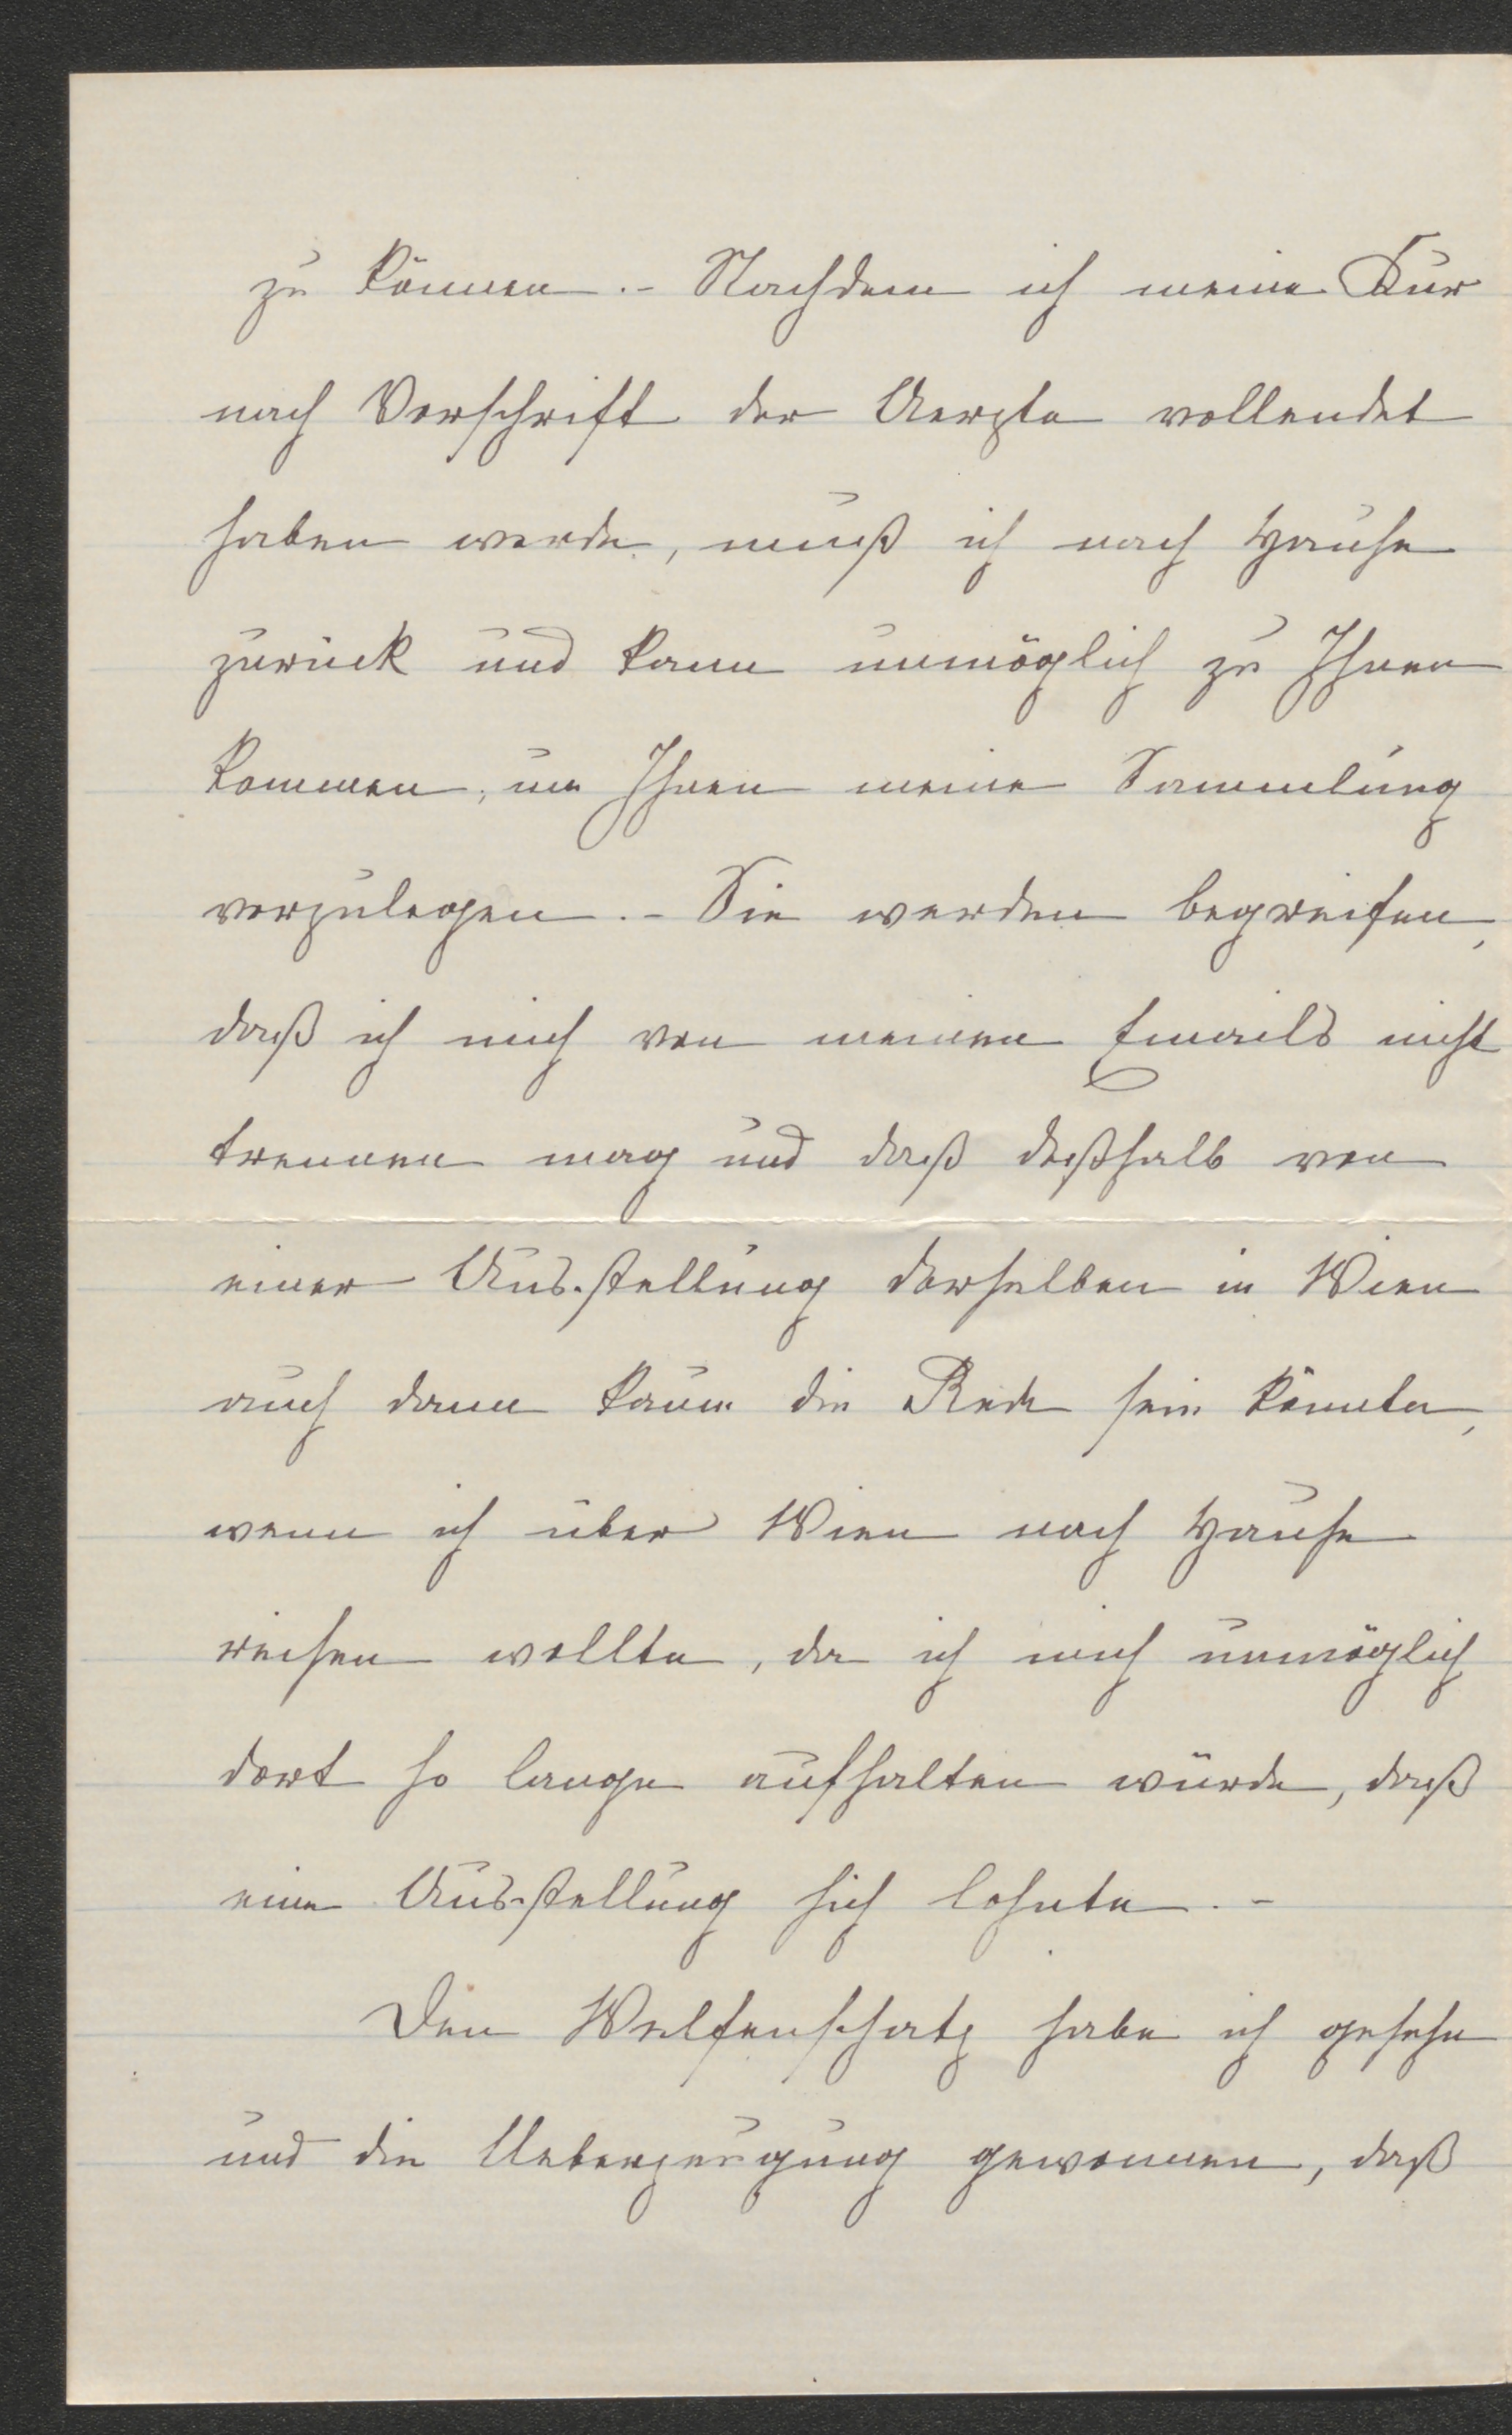 zu können. – Nachdem ich meine Kur
nach Vorschrift der Aerzte vollendet
haben werde, muß ich nach Hause
zurück und kann unmöglich zu Ihnen
kommen, um Ihnen meine Sammlung
vorzulegen. – Sie werden begreifen,
daß ich mich von meinen Emails nicht
trennen mag und daß deßhalb von
einer Ausstellung derselben in Wien
auch dann kaum die Rede sein könnte,
wenn ich über Wien nach Hause
reisen wollte, da ich mich unmöglich
dort so lange aufhalten würde, daß
eine Ausstellung sich lohnte. –
Den Welfenschatz habe ich gesehn
und die Ueberzeugung gewonnen, daß